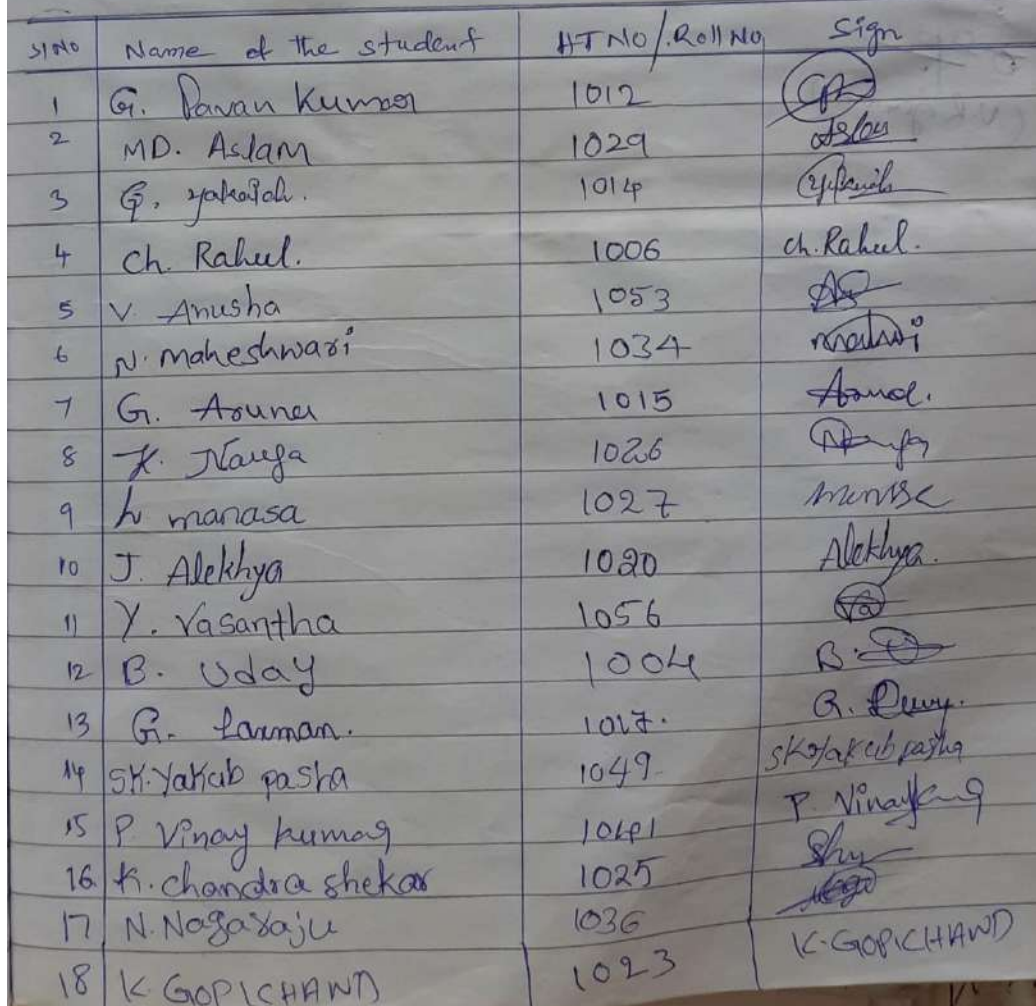 Sl No Name of the student HT NO/Roll No Sign
1 G. Pavan Kumar 1012
2 MD. Aslam 1029 Aslam
3 G. yakaiah. 1014
4 Ch. Rahul. 1006 ch. Rahul.
5 V. Anusha 1053
6 N. maheshwari 1034
7 G. Aruna 1015 Aruna.
8 K. Naga 1026
9 L manasa 1027
10 J. Alekhya 1020 Alekhya.
11 Y. Vasantha 1056
12 B. Uday 1004 B.
13 G. Laxman. 1017. G.
14 SK. Yakub pasha 1049 SK Yakub pasha
15 P Vinay kumar 1041 P. Vinay
16 K. chandra shekar 1025
17 N. Nagaraju 1036
18 K GOPICHAND 1023 K. GOPICHAND